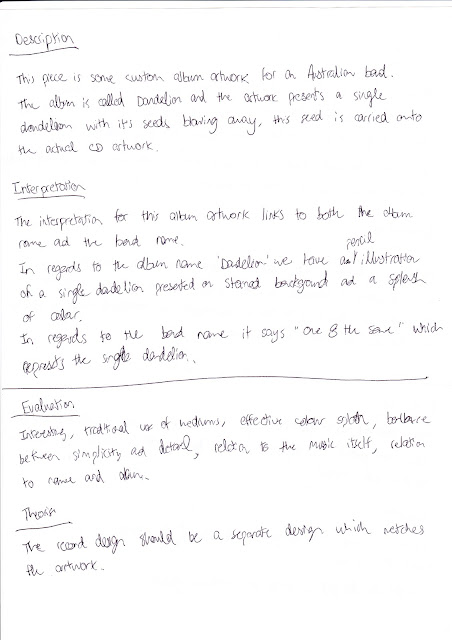 Description
This piece is some custom album artwork for an Australian band.
The album is called Dandelion and the artwork presents a single
dandelion with it's seeds blowing away, this seed is carried onto
the actual CD artwork.
Interpretation
The interpretation for this album artwork links to both the album
name and the band name.
In regards to the album name 'Dandelion' we have a pencil illustration
of a single dandelion presented on stained background and a splash
of colour.
In regards to the band name it says "One & the same" which
represents the single dandelion.
Evaluation
Interesting, traditional use of mediums, effective colour splash,
between simplicity and detail, relation to the music itself, relation
to name and album.
The record design should be a separate design which matches
the artwork.